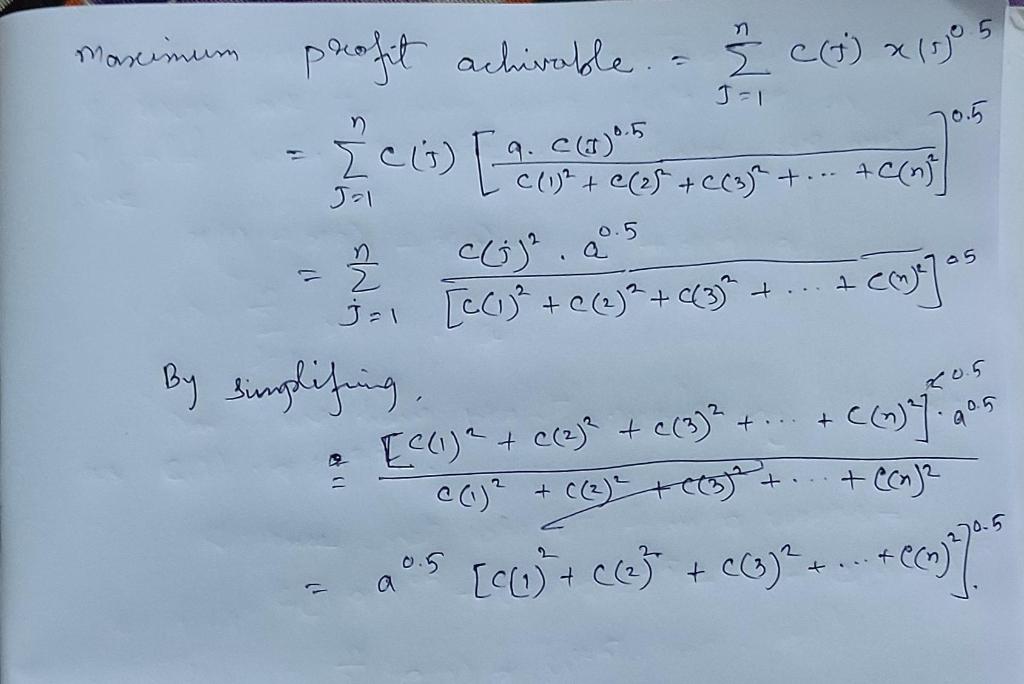 maximum profit achivable. = n Σ J=1 c(j) x(j)^0.5
= n Σ J=1 c(j) [ a. c(J)^0.5 / c(1)² + c(2)² + c(3)² + ... + c(n)² ]^0.5
= n Σ j=1 c(j)² . a^0.5 / [c(1)² + c(2)² + c(3)² + ... + c(n)²]^0.5
By simplifing,
= [c(1)² + c(2)² + c(3)² + ... + c(n)²]^0.5 . a^0.5 / c(1)² + c(2)² + c(3)² + ... + c(n)²
= a^0.5 [c(1)² + c(2)² + c(3)² + ... + c(n)²]^0.5.